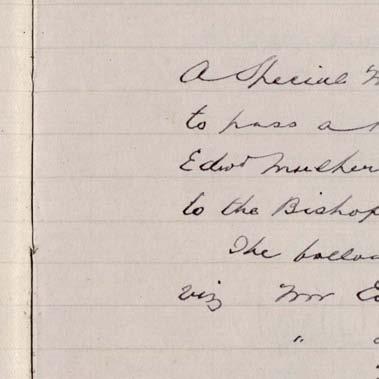 A Special
to pass a
Edwd Mulher
to the Bishop
The
viz Mr Ed
"